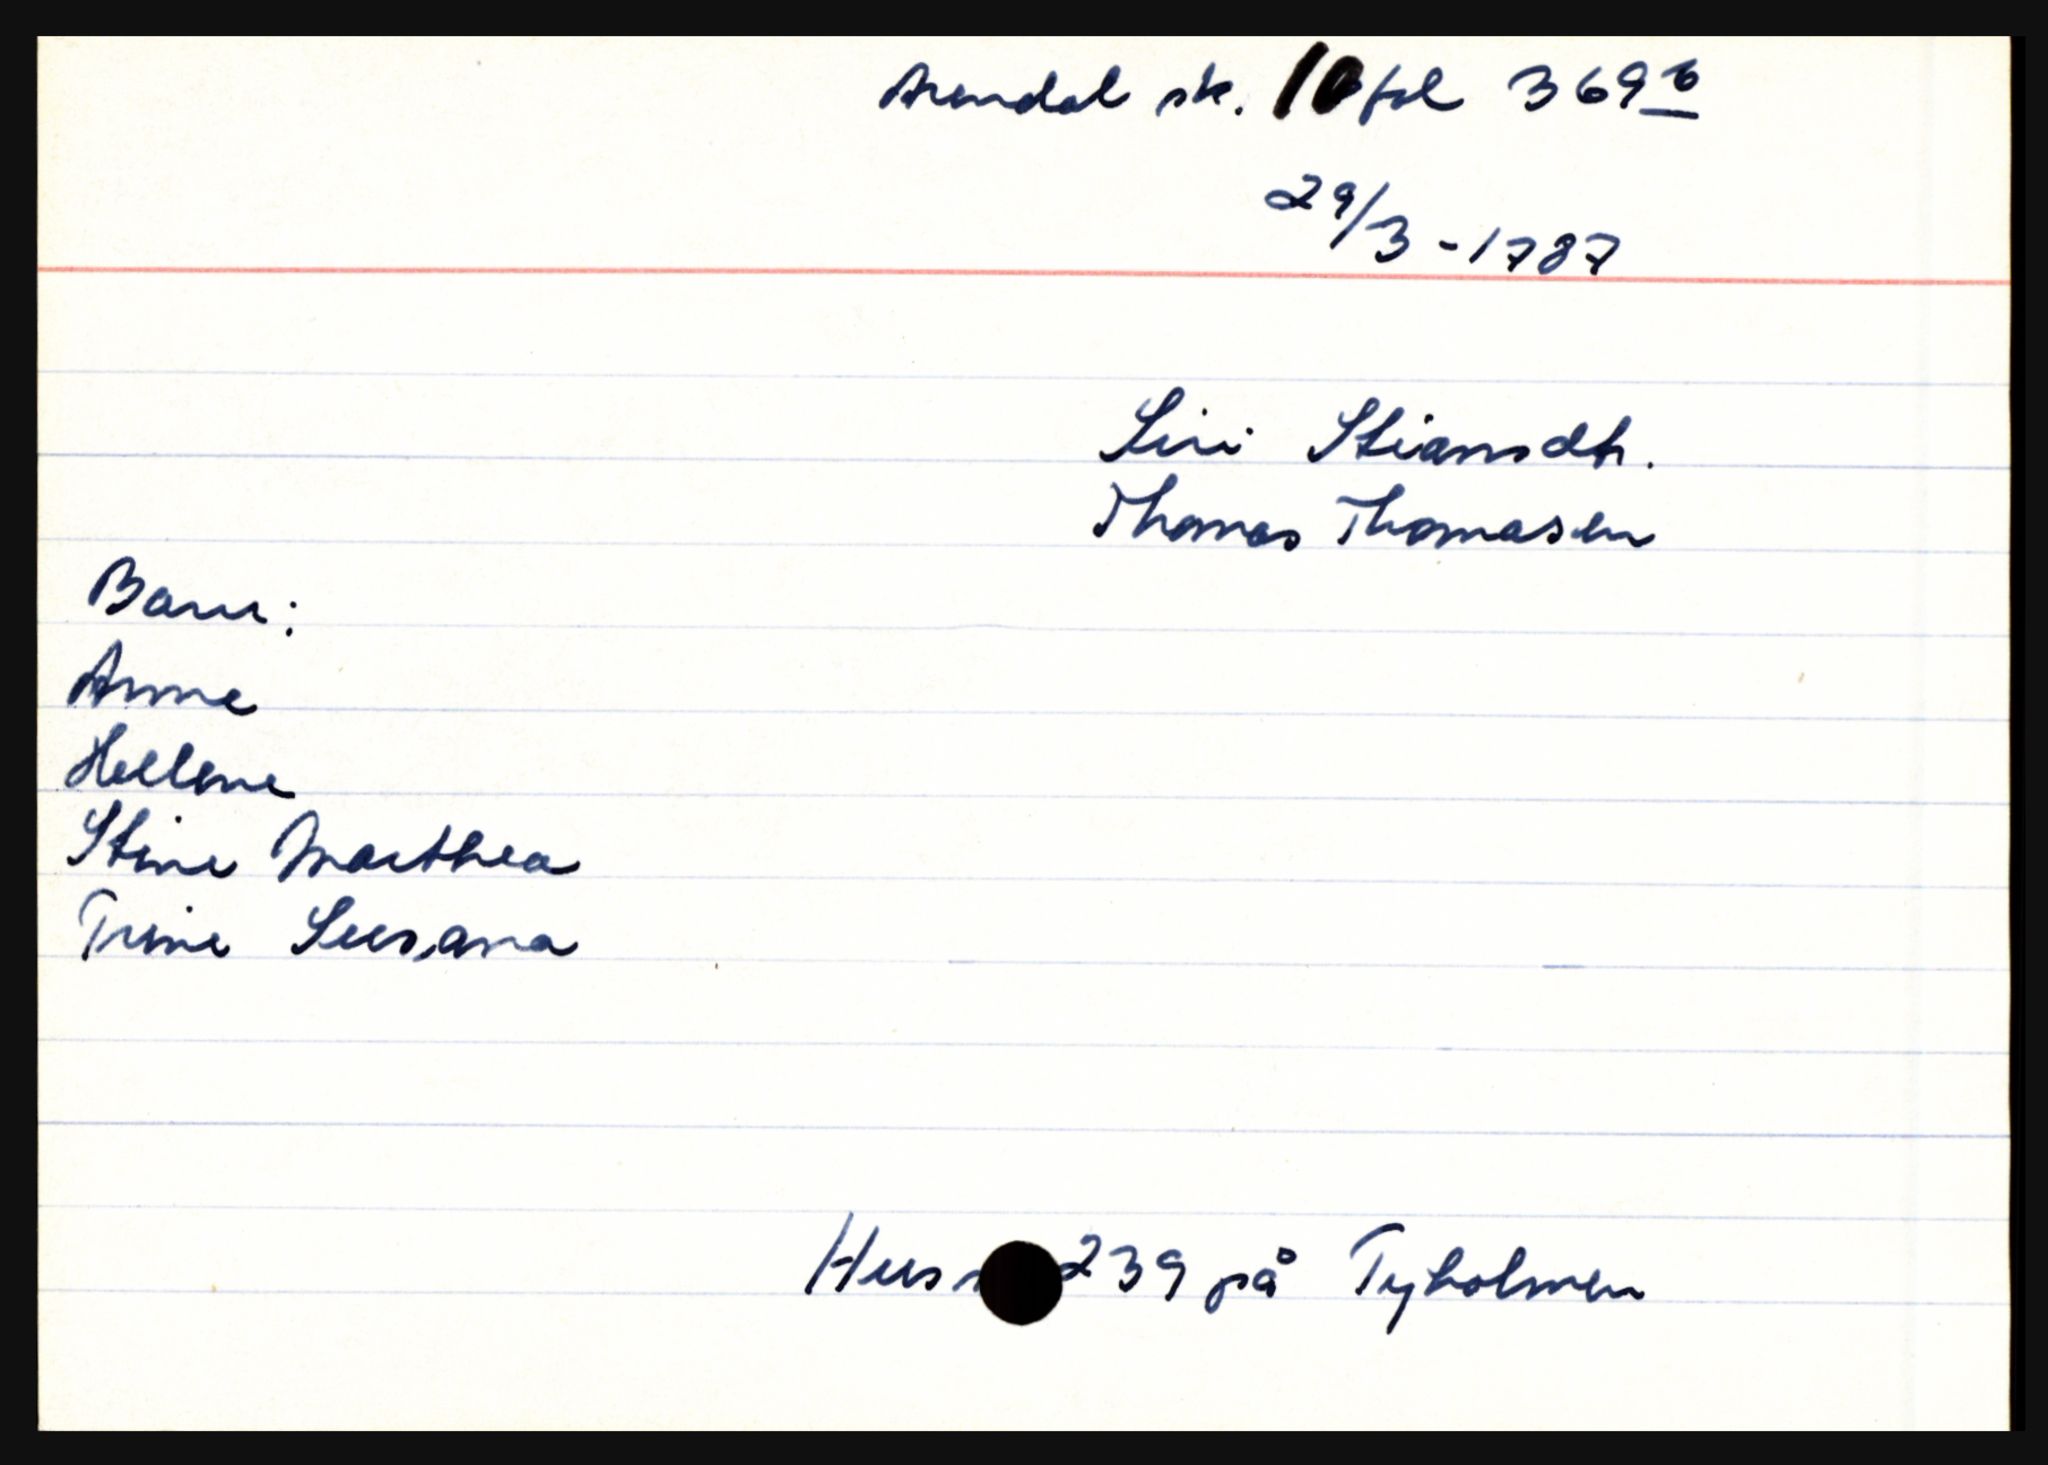 Arendal sk. 10 fol 369 b
29/3 - 1787
Siri Stiansdtr.
Thomas Thomasen
Barn:
Anne
Hellene
Stine Marthea
Trine Susana
Hus 239 på Tyholmen